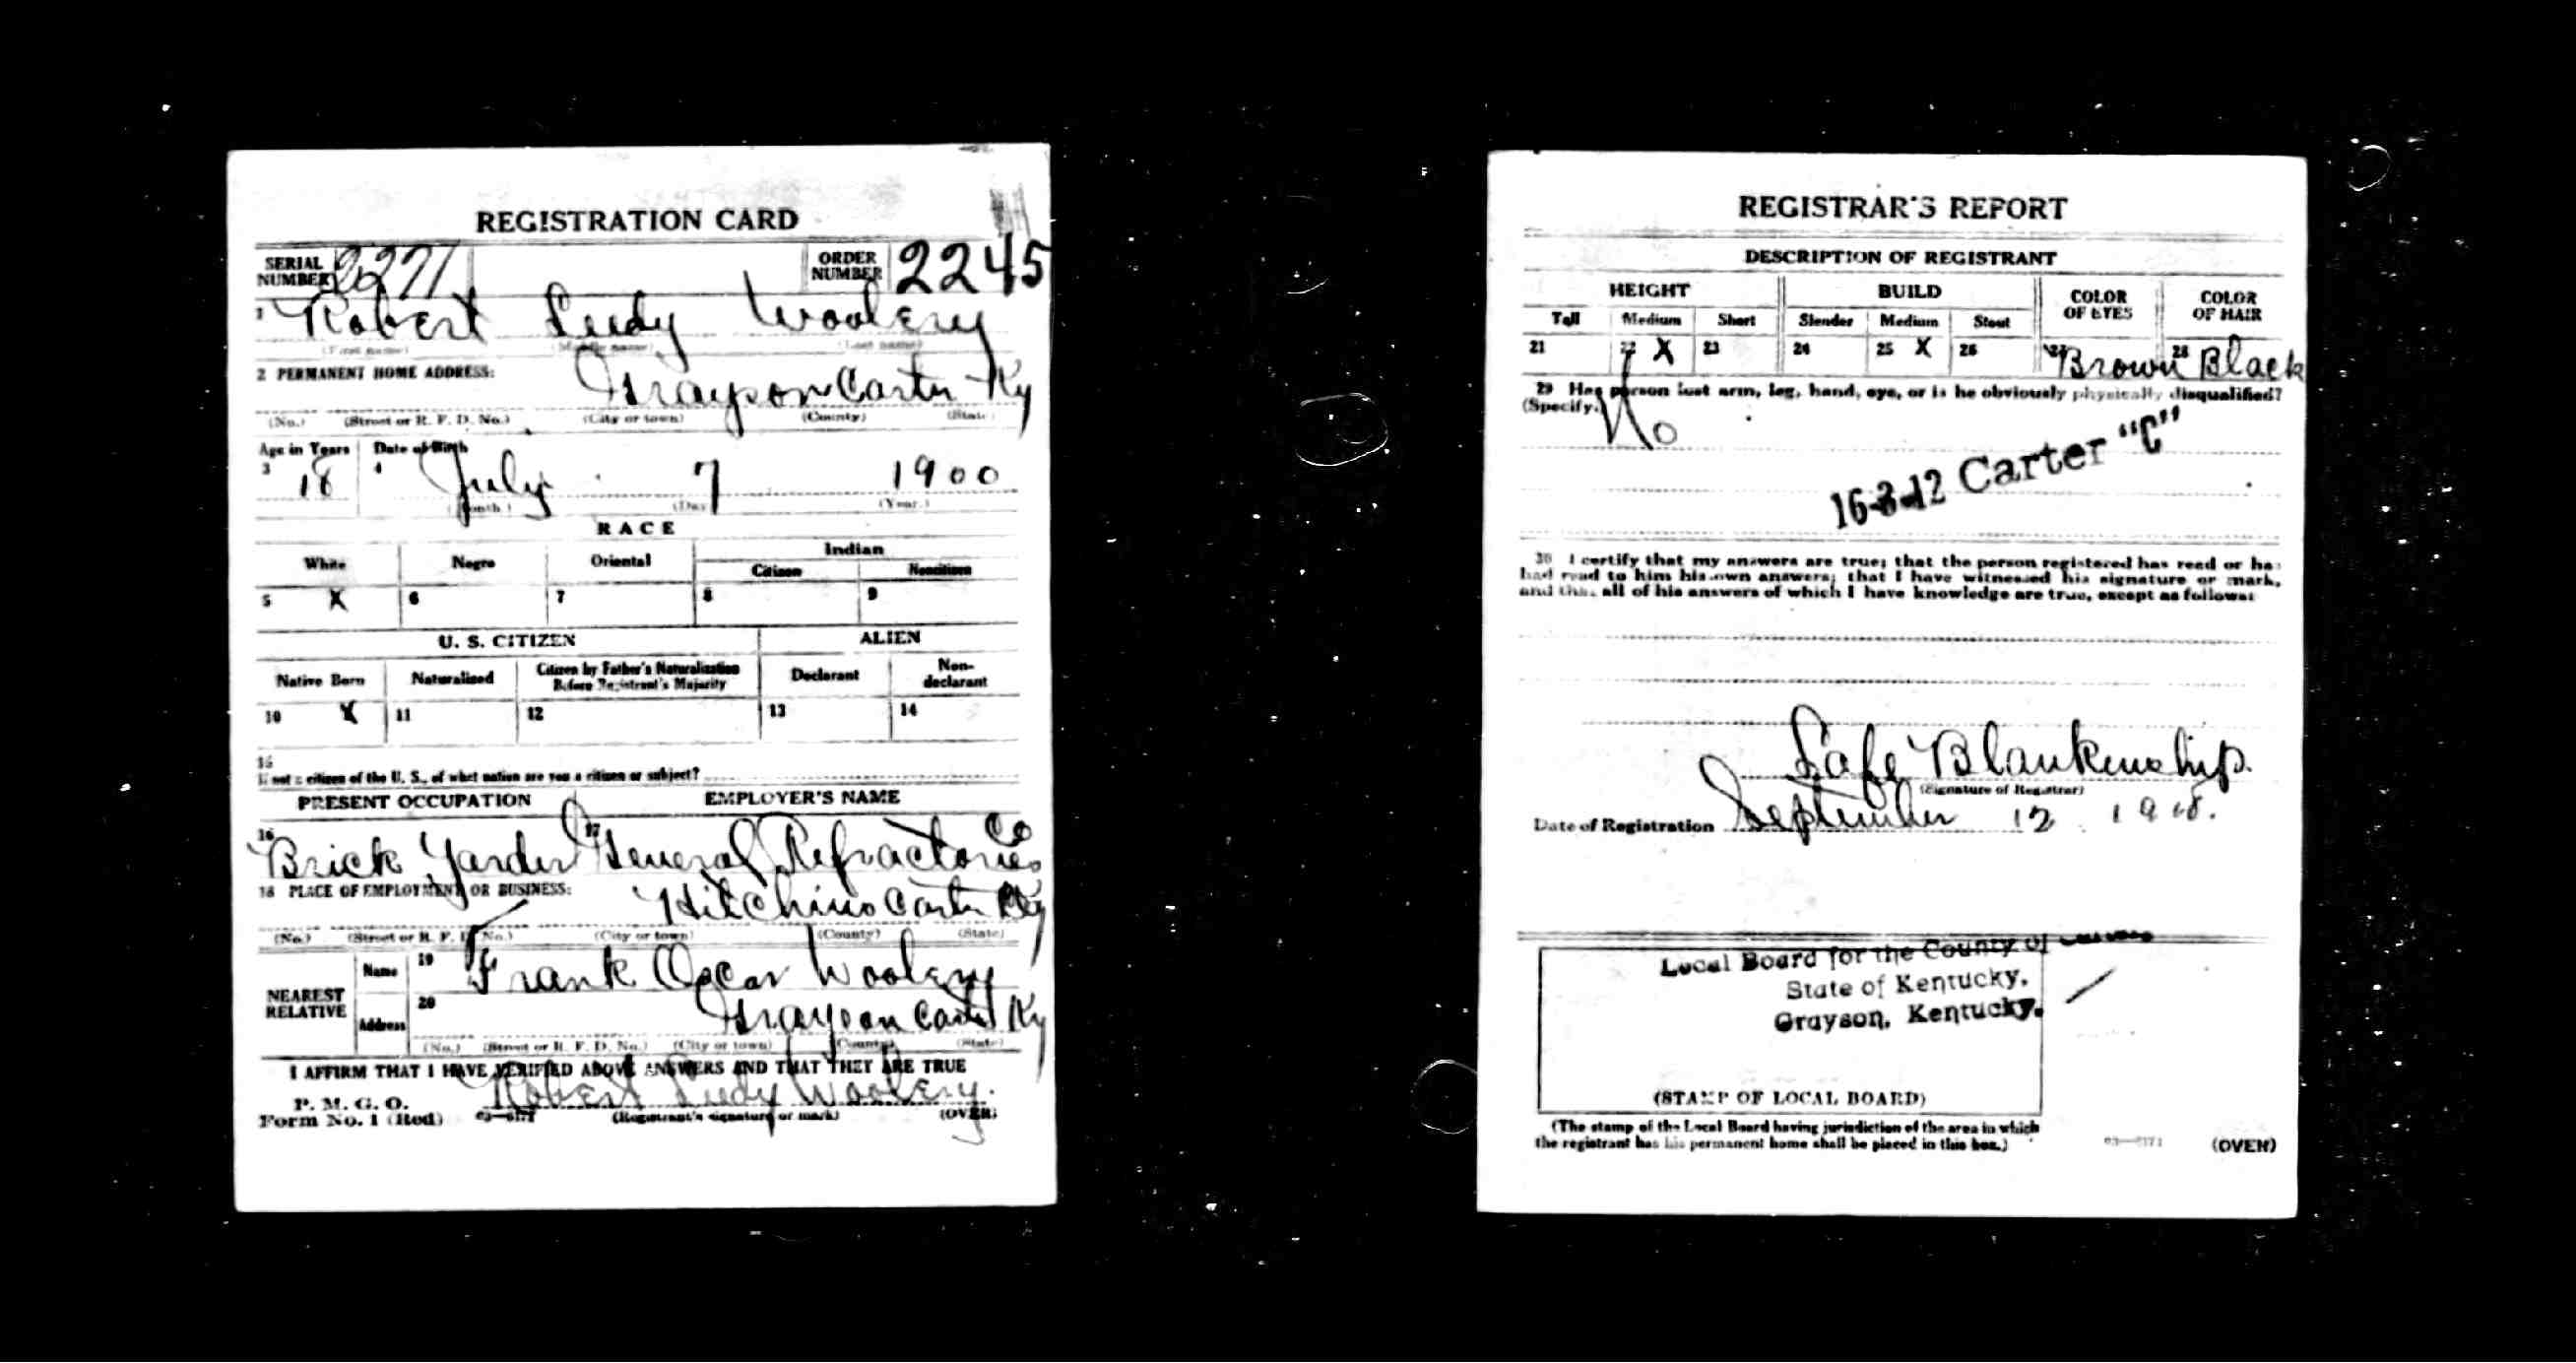 REGISTRATION CARD
SERIAL NUMBER 2271 ORDER NUMBER 2245
1 Robert Ludy Woolery
(First name) (Middle name) (Last name)
2 PERMANENT HOME ADDRESS: Grayson Carter Ky
(No.) (Street or R. F. D. No.) (City or town) (County) (State)
Age in Years Date of Birth
3 18 4 July 7 1900
(Month) (Day) (Year.)
RACE
White Negro Oriental Indian
Citizen Noncitizen
5 X 6 7 8 9
U. S. CITIZEN ALIEN
Native Born Naturalized Citizen by Father's Naturalization Before Registrant's Majority Declarant Non-declarant
10 X 11 12 13 14
15
If not a citizen of the U. S., of what nation are you a citizen or subject?
PRESENT OCCUPATION EMPLOYER'S NAME
16 Brick Yarder 17 General Refractories Co
18 PLACE OF EMPLOYMENT OR BUSINESS: Hitchins Carter Ky
(No.) (Street or R. F. D. No.) (City or town) (County) (State)
NEAREST RELATIVE Name 19 Frank Oscar Woolery
Address 20 Grayson Carter Ky
(No.) (Street or R. F. D. No.) (City or town) (County) (State)
I AFFIRM THAT I HAVE VERIFIED ABOVE ANSWERS AND THAT THEY ARE TRUE
P. M. G. O.
Form No. 1 (Red) 03—6171 Robert Ludy Woolery.
(Registrant's signature or mark) (OVER)
REGISTRAR'S REPORT
DESCRIPTION OF REGISTRANT
HEIGHT BUILD COLOR OF EYES COLOR OF HAIR
Tall Medium Short Slender Medium Stout
21 22 X 23 24 25 X 26 27 Brown 28 Black
29 Has person lost arm, leg, hand, eye, or is he obviously physically disqualified?
(Specify.) No
16-3-12 Carter "C"
30 I certify that my answers are true; that the person registered has read or has
had read to him his own answers; that I have witnessed his signature or mark,
and that all of his answers of which I have knowledge are true, except as follows:
Lafe Blankenship.
(Signature of Registrar)
Date of Registration September 12 1918.
Local Board for the County of
State of Kentucky,
Grayson, Kentucky.
(STAMP OF LOCAL BOARD)
(The stamp of the Local Board having jurisdiction of the area in which
the registrant has his permanent home shall be placed in this box.)
03—6171 (OVER)